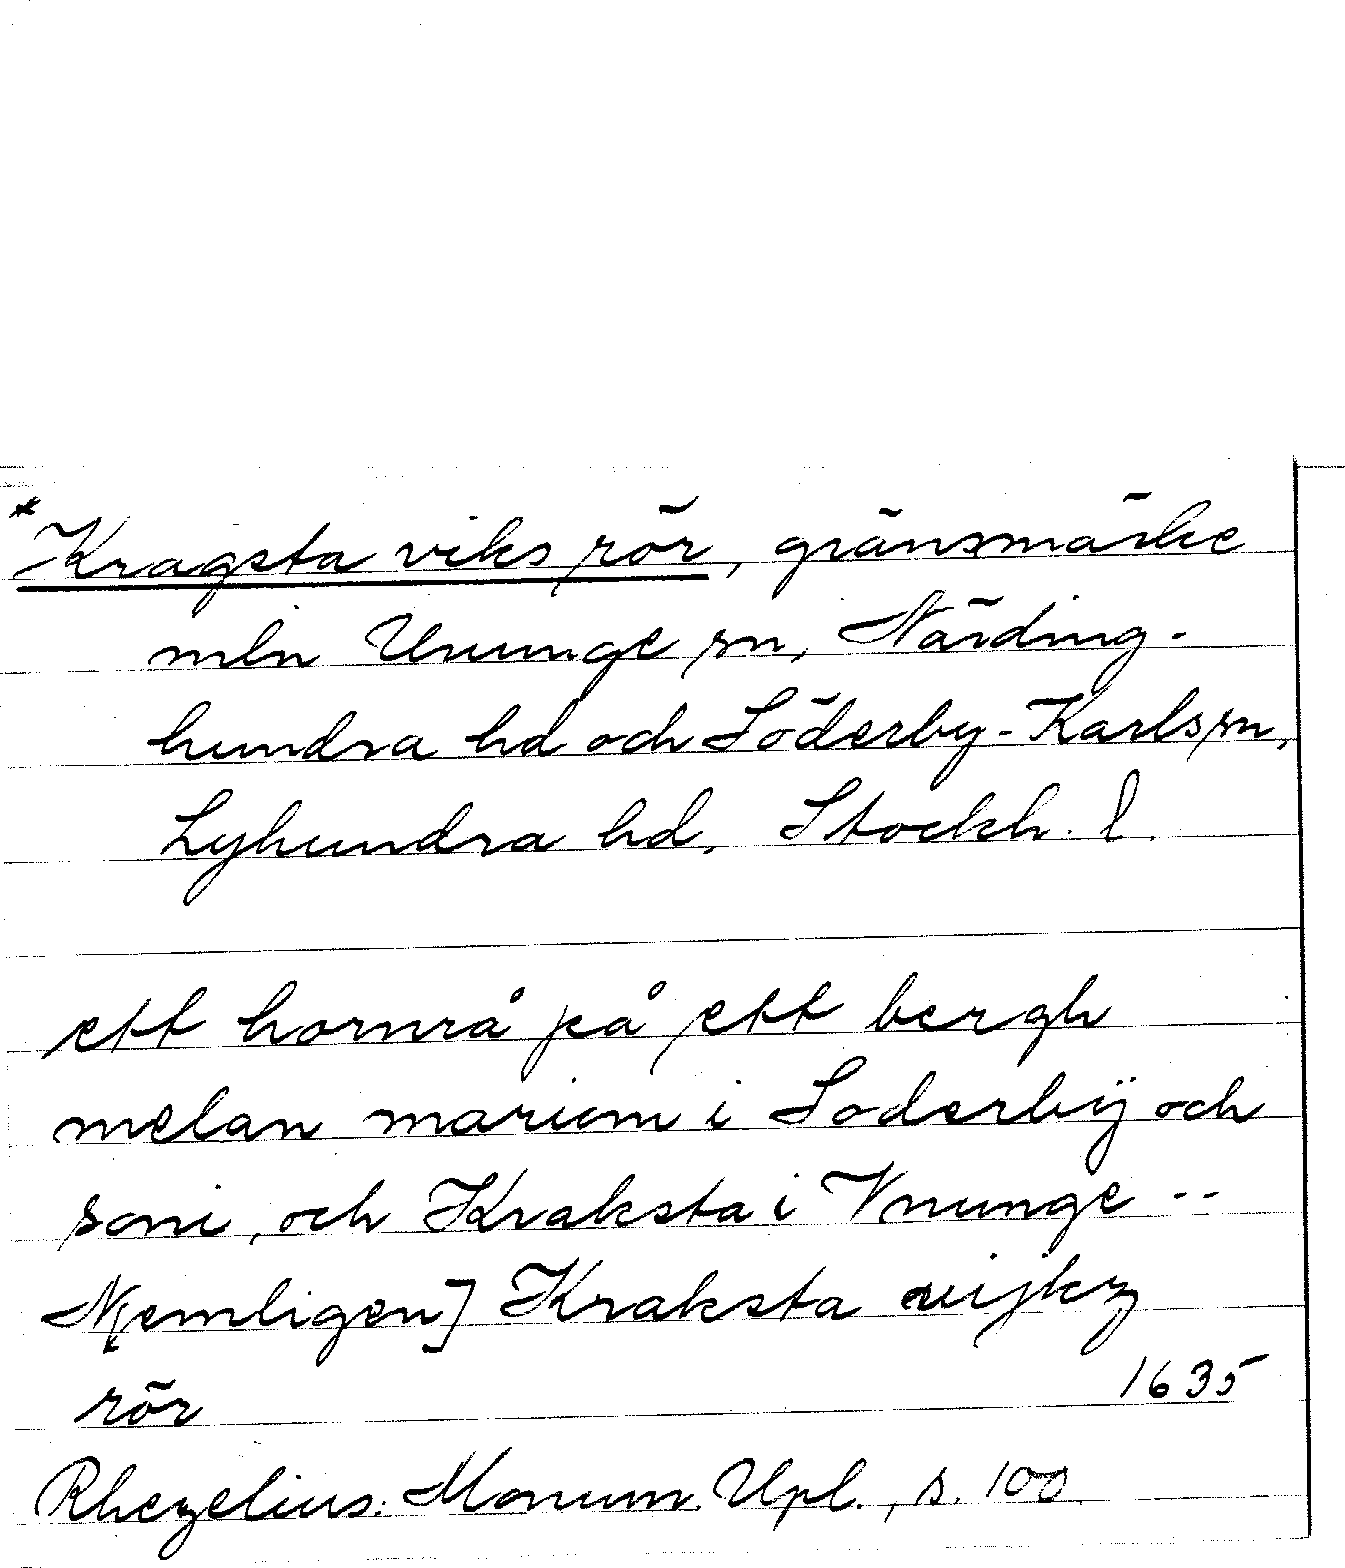 *Kragsta viks rör, gränsmärke
mln Ununge sn, Närding-
hundra hd och Söderby-Karls sn,
Lyhundra hd. Stockh. l.
ett hornrå på ett bergh
melan marium i Soderbÿ och
soni, och Kraksta i Vnunge --
N[emligen] Kraksta vijkz
rör 1635
Rhezelius: Monum. Upl., s. 100